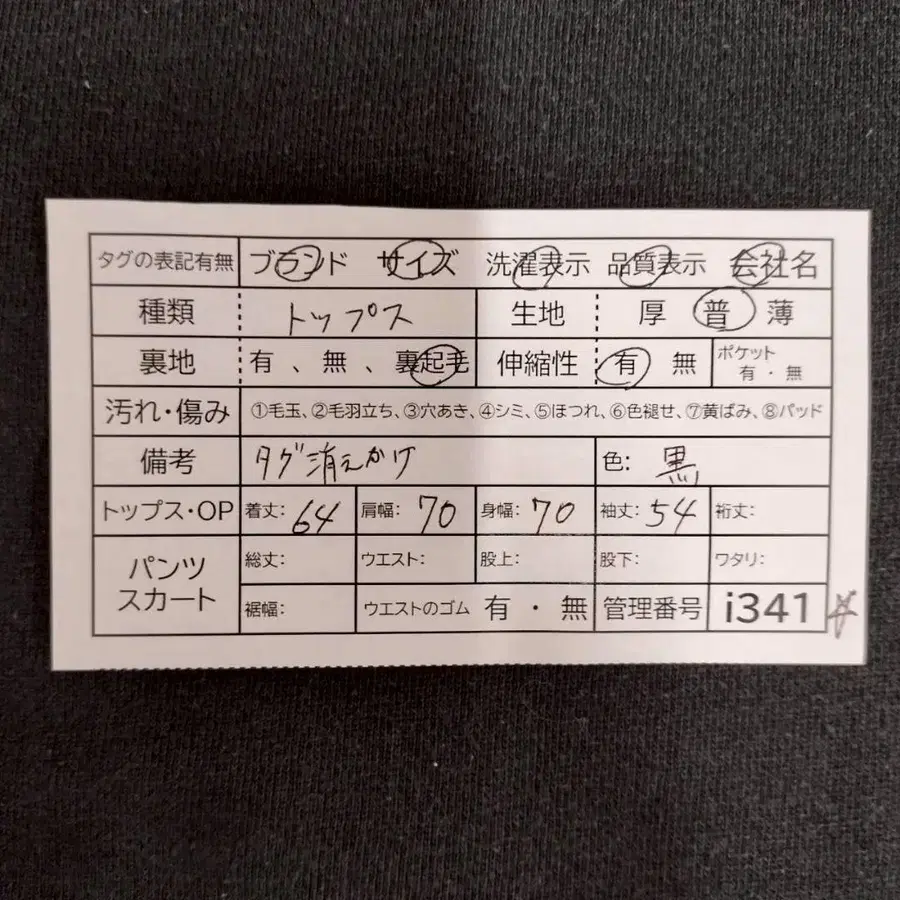 タグの表記有無 ブランド サイズ 洗濯表示 品質表示 会社名
種類 トップス 生地 厚 普 薄
裏地 有、無、裏起毛 伸縮性 有 無 ポケット 有・無
汚れ・傷み ①毛玉、②毛羽立ち、③穴あき、④シミ、⑤ほつれ、⑥色褪せ、⑦黄ばみ、⑧パッド
備考 タグ消えかけ 色: 黒
トップス・OP 着丈: 64 肩幅: 70 身幅: 70 袖丈: 54 裄丈:
パンツ スカート 総丈: ウエスト: 股上: 股下: ワタリ:
裾幅: ウエストのゴム 有・無 管理番号 i341